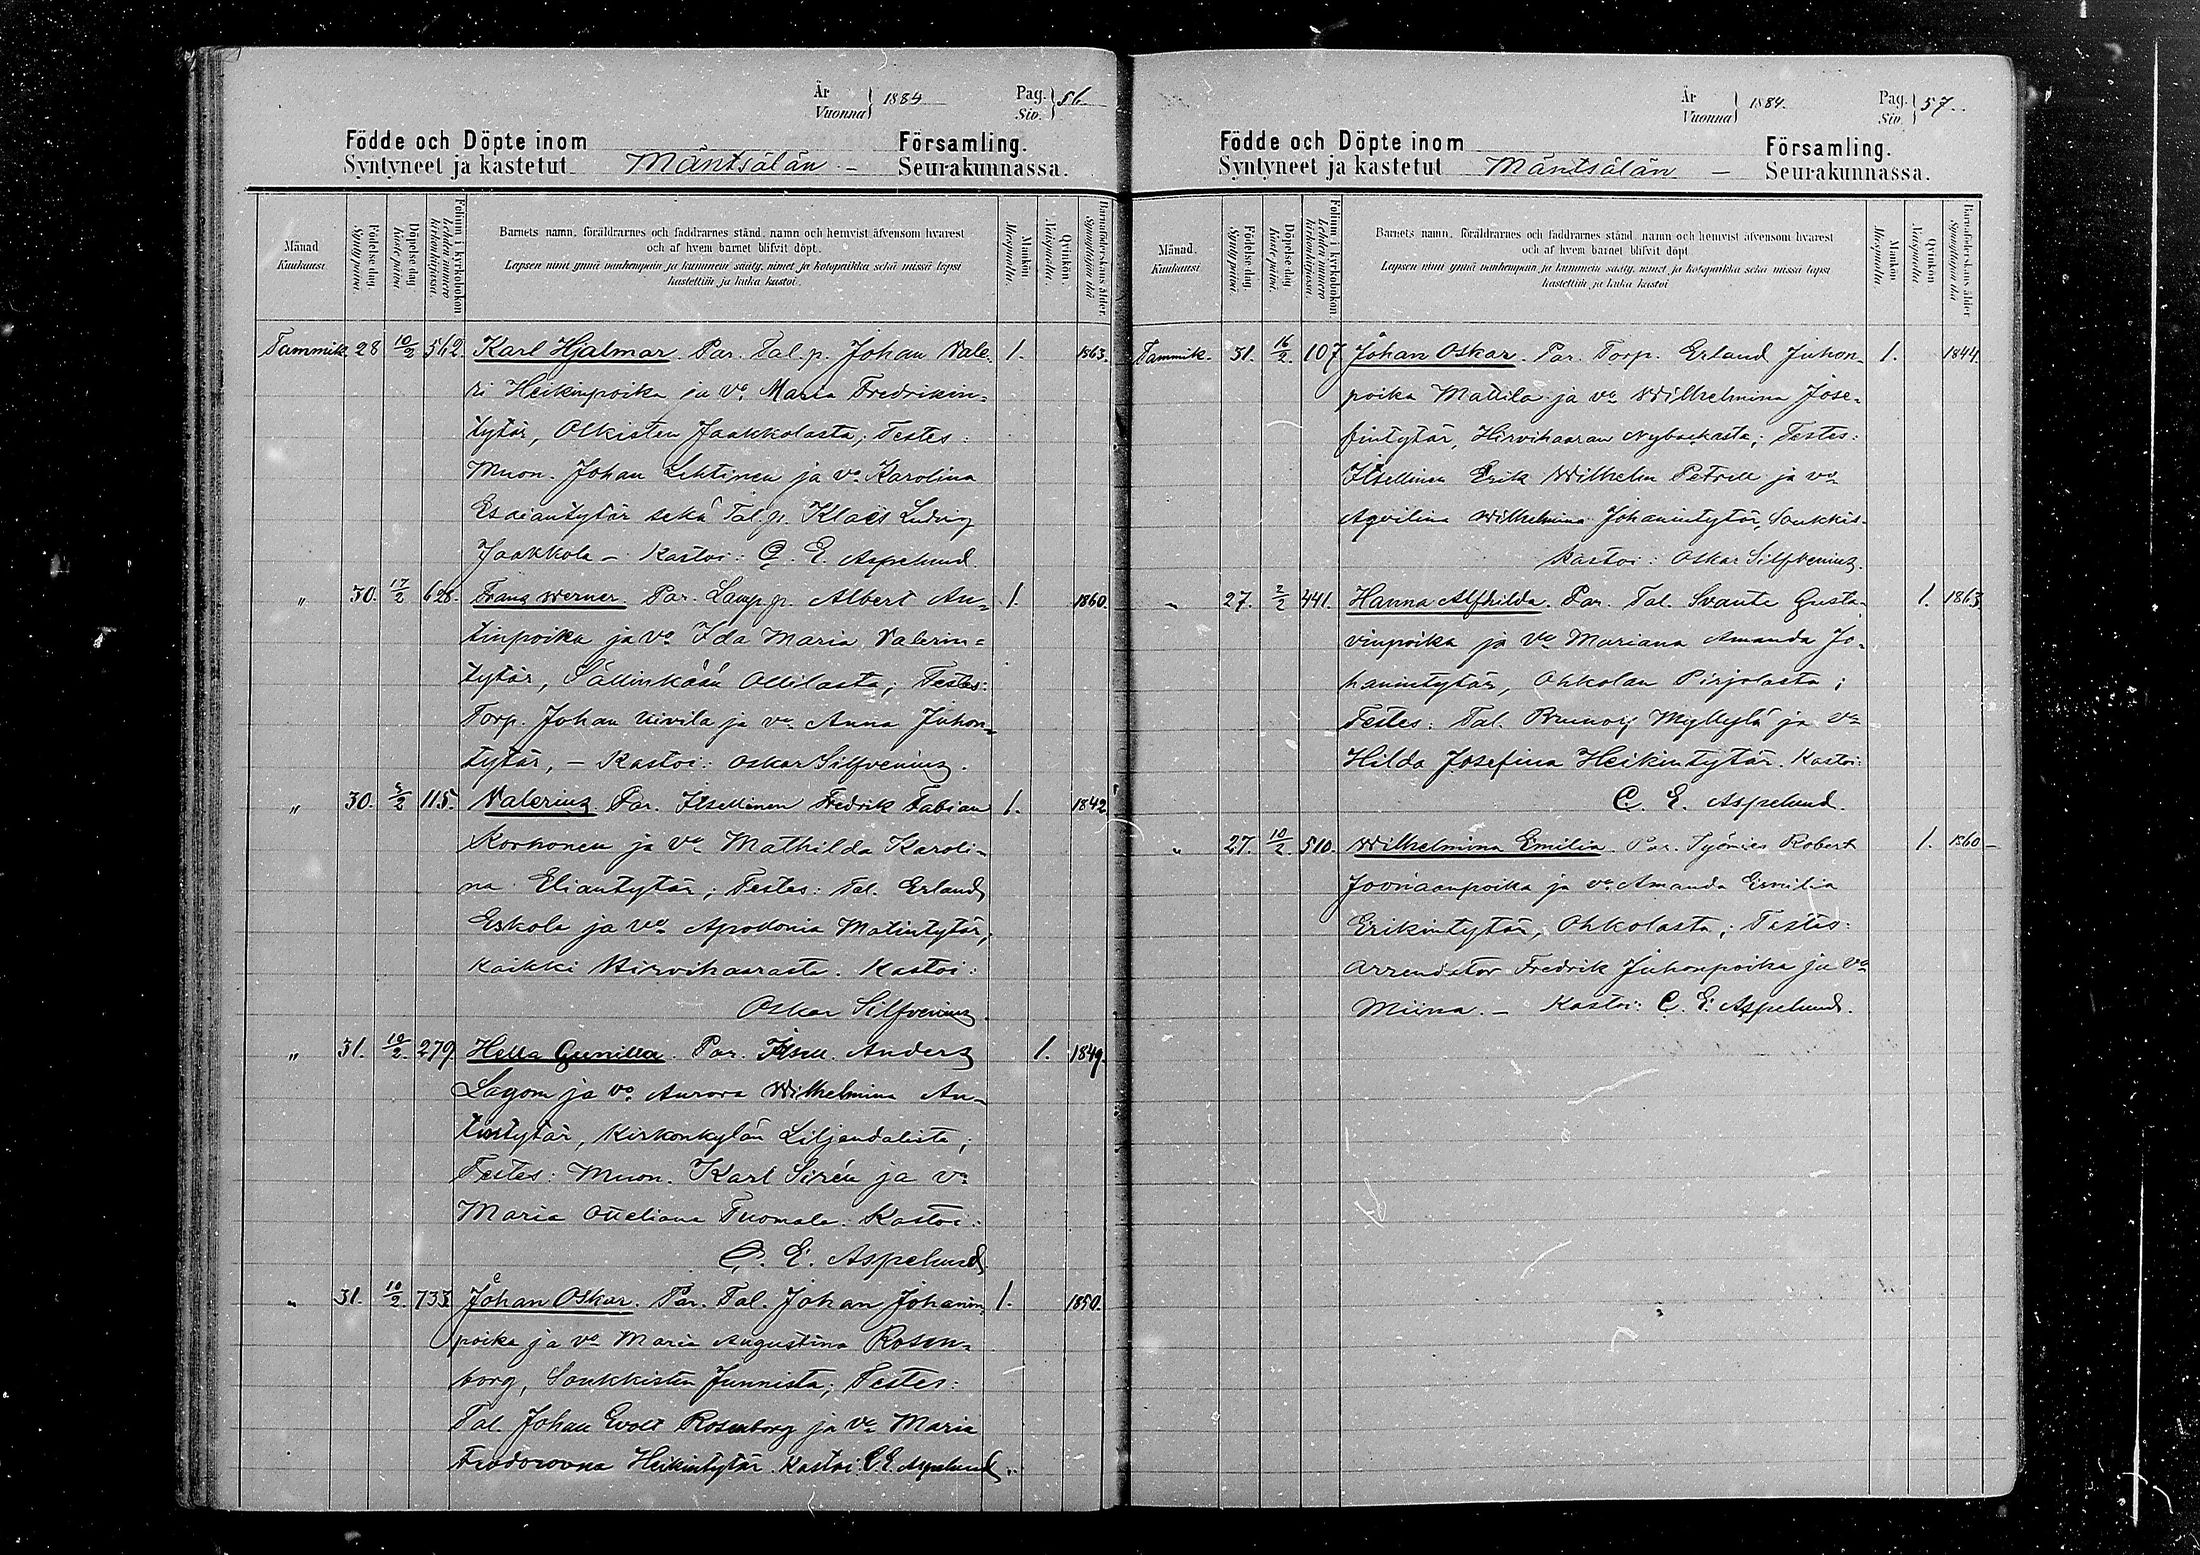 År
Vuonna } 1884
Pag.
Siv. } 56
Födde och Döpte inom
Syntyneet ja kastetut
Mäntsälän –
Församling.
Seurakunnassa.
Månad
Kuukausi
Födelse dag
Synty päivä.
Döpelse dag
Kaste päivä.
Folium i kyrkoboken
Lehden numero kirkonkirjassa.
Barnets namn, föräldrarnes och faddrarnes stånd, namn och hemvist äfvensom hvarest
och af hvem barnet blifvit döpt.
Lapsen nimi ynnä vanhempain ja kummein sääty, nimet ja kotopaikka sekä missä lapsi
kastettiin ja kuka kastoi.
Mankön.
Miespuolia.
Qvinkön.
Vaispuolia.
Barnaföderskans ålder.
Synnyttäjän ikä
Tammik. 28 10/2 562. Karl Hjalmar. Par. Tal. p. Johan Vale- 1. 1863.
ri Heikinpoika ja vo Maria Fredrikin-
tytär, Olkisten Jaakkolasta; Testes:
Muon. Johan Lehtinen ja vo Karolina
Esaiantytär sekä Tal. p. Klaes Ludvig
Jaakkola – Kastoi: C. E. Aspelund.
" 30. 17/2 628. Frans Werner Par. Lamp. p. Albert An- 1. 1860.
tinpoika ja vo Ida Maria Valerin-
tytär, Sällinkään Ollilasta; Testes:
Torp. Johan Uivila ja vo Anna Juhon-
tytär, – Kastoi: Oskar Silfvenius.
" 30. 115. Valerius Par. Itsellinen Fredrik Fabian 1. 1842
Korhonen ja vo Mathilda Karoli-
na Eliantytär; Testes: Tal. Erland
Eskola ja vo Apollonia Matintytär,
kaikki Hirvihaarasta. Kastoi:
Oskar Silfvenius.
" 31. 10/2. 279. Hella Gunilla. Par. Itsell. Anders 1. 1849.
Lagom ja vo. Aurora Wilhelmina An-
tintytär, Kirkonkylän Liljendalista;
Testes: Muon. Karl Sirén ja vo
Maria Otteliana Tuomala. Kastoi:
C. E. Aspelund
" 31. 10/2. 733. Johan Oskar. Par. Tal. Johan Johanin 1. 1850.
poika ja vo Maria Augustina Rosen-
borg, Soukkisten Junnista; Testes:
Tal. Johan Evolt Rosenborg ja vo Maria
Feodorovna Heikintytär. Kastoi C. E. Aspelund.
År
Vuonna } 1884.
Pag.
Siv. } 57.
Födde och Döpte inom
Syntyneet ja kastetut
Mäntsälän –
Församling.
Seurakunnassa.
Månad.
Kuukausi
Födelse dag
Synty päivä.
Döpelse dag
Kaste päivä.
Folium i kyrkoboken.
Lehden numero kirkonkirjassa.
Barnets namn, föräldrarnes och faddrarnes stånd, namn och hemvist äfvensom hvarest
och af hvem barnet blifvit döpt
Lapsen nimi ynnä vanhempain ja kummein sääty, nimet ja kotopaikka sekä missä lapsi
kastettiin ja kuka kastoi
Mankön
Miespuolia
Qvinkön
Vaispuolia
Barnaföderskans ålder
Synnyttäjän ikä
Tammik. 31. 16/2. 107. Johan Oskar. Par. Torp. Erland Juhon- 1. 1844.
poika Mattila ja vo Wilhelmina Jose-
fintytär, Hirvihaaran Nybackasta; Testes:
Itsellinen Erik Wilhelm Petrell ja vo
Aqvilina Wilhelmina Johanintytär, Soukkis-
Kastoi: Oskar Silfvenius.
" 27. 2/2 441. Hanna Alfhilda. Par. Tal. Svante Gusta- 1. 1863
vinpoika ja vo Mariana Amanda Jo-
hanintytär, Ohkolan Pirjolasta;
Testes: Tal. Myllylä ja vo
Hilda Josefina Heikintytär. Kastoi:
C. E. Aspelund.
" 27. 10/2. 510. Wilhelmina Emilia. Par. Työmies Robert 1. 1860 –
Joonaanpoika ja vo. Amanda Emilia
Erikintytär, Ohkolasta; Testes:
Arrendator Fredrik Juhonpoika ja vo
Miina. – Kastoi: C. E. Aspelund.